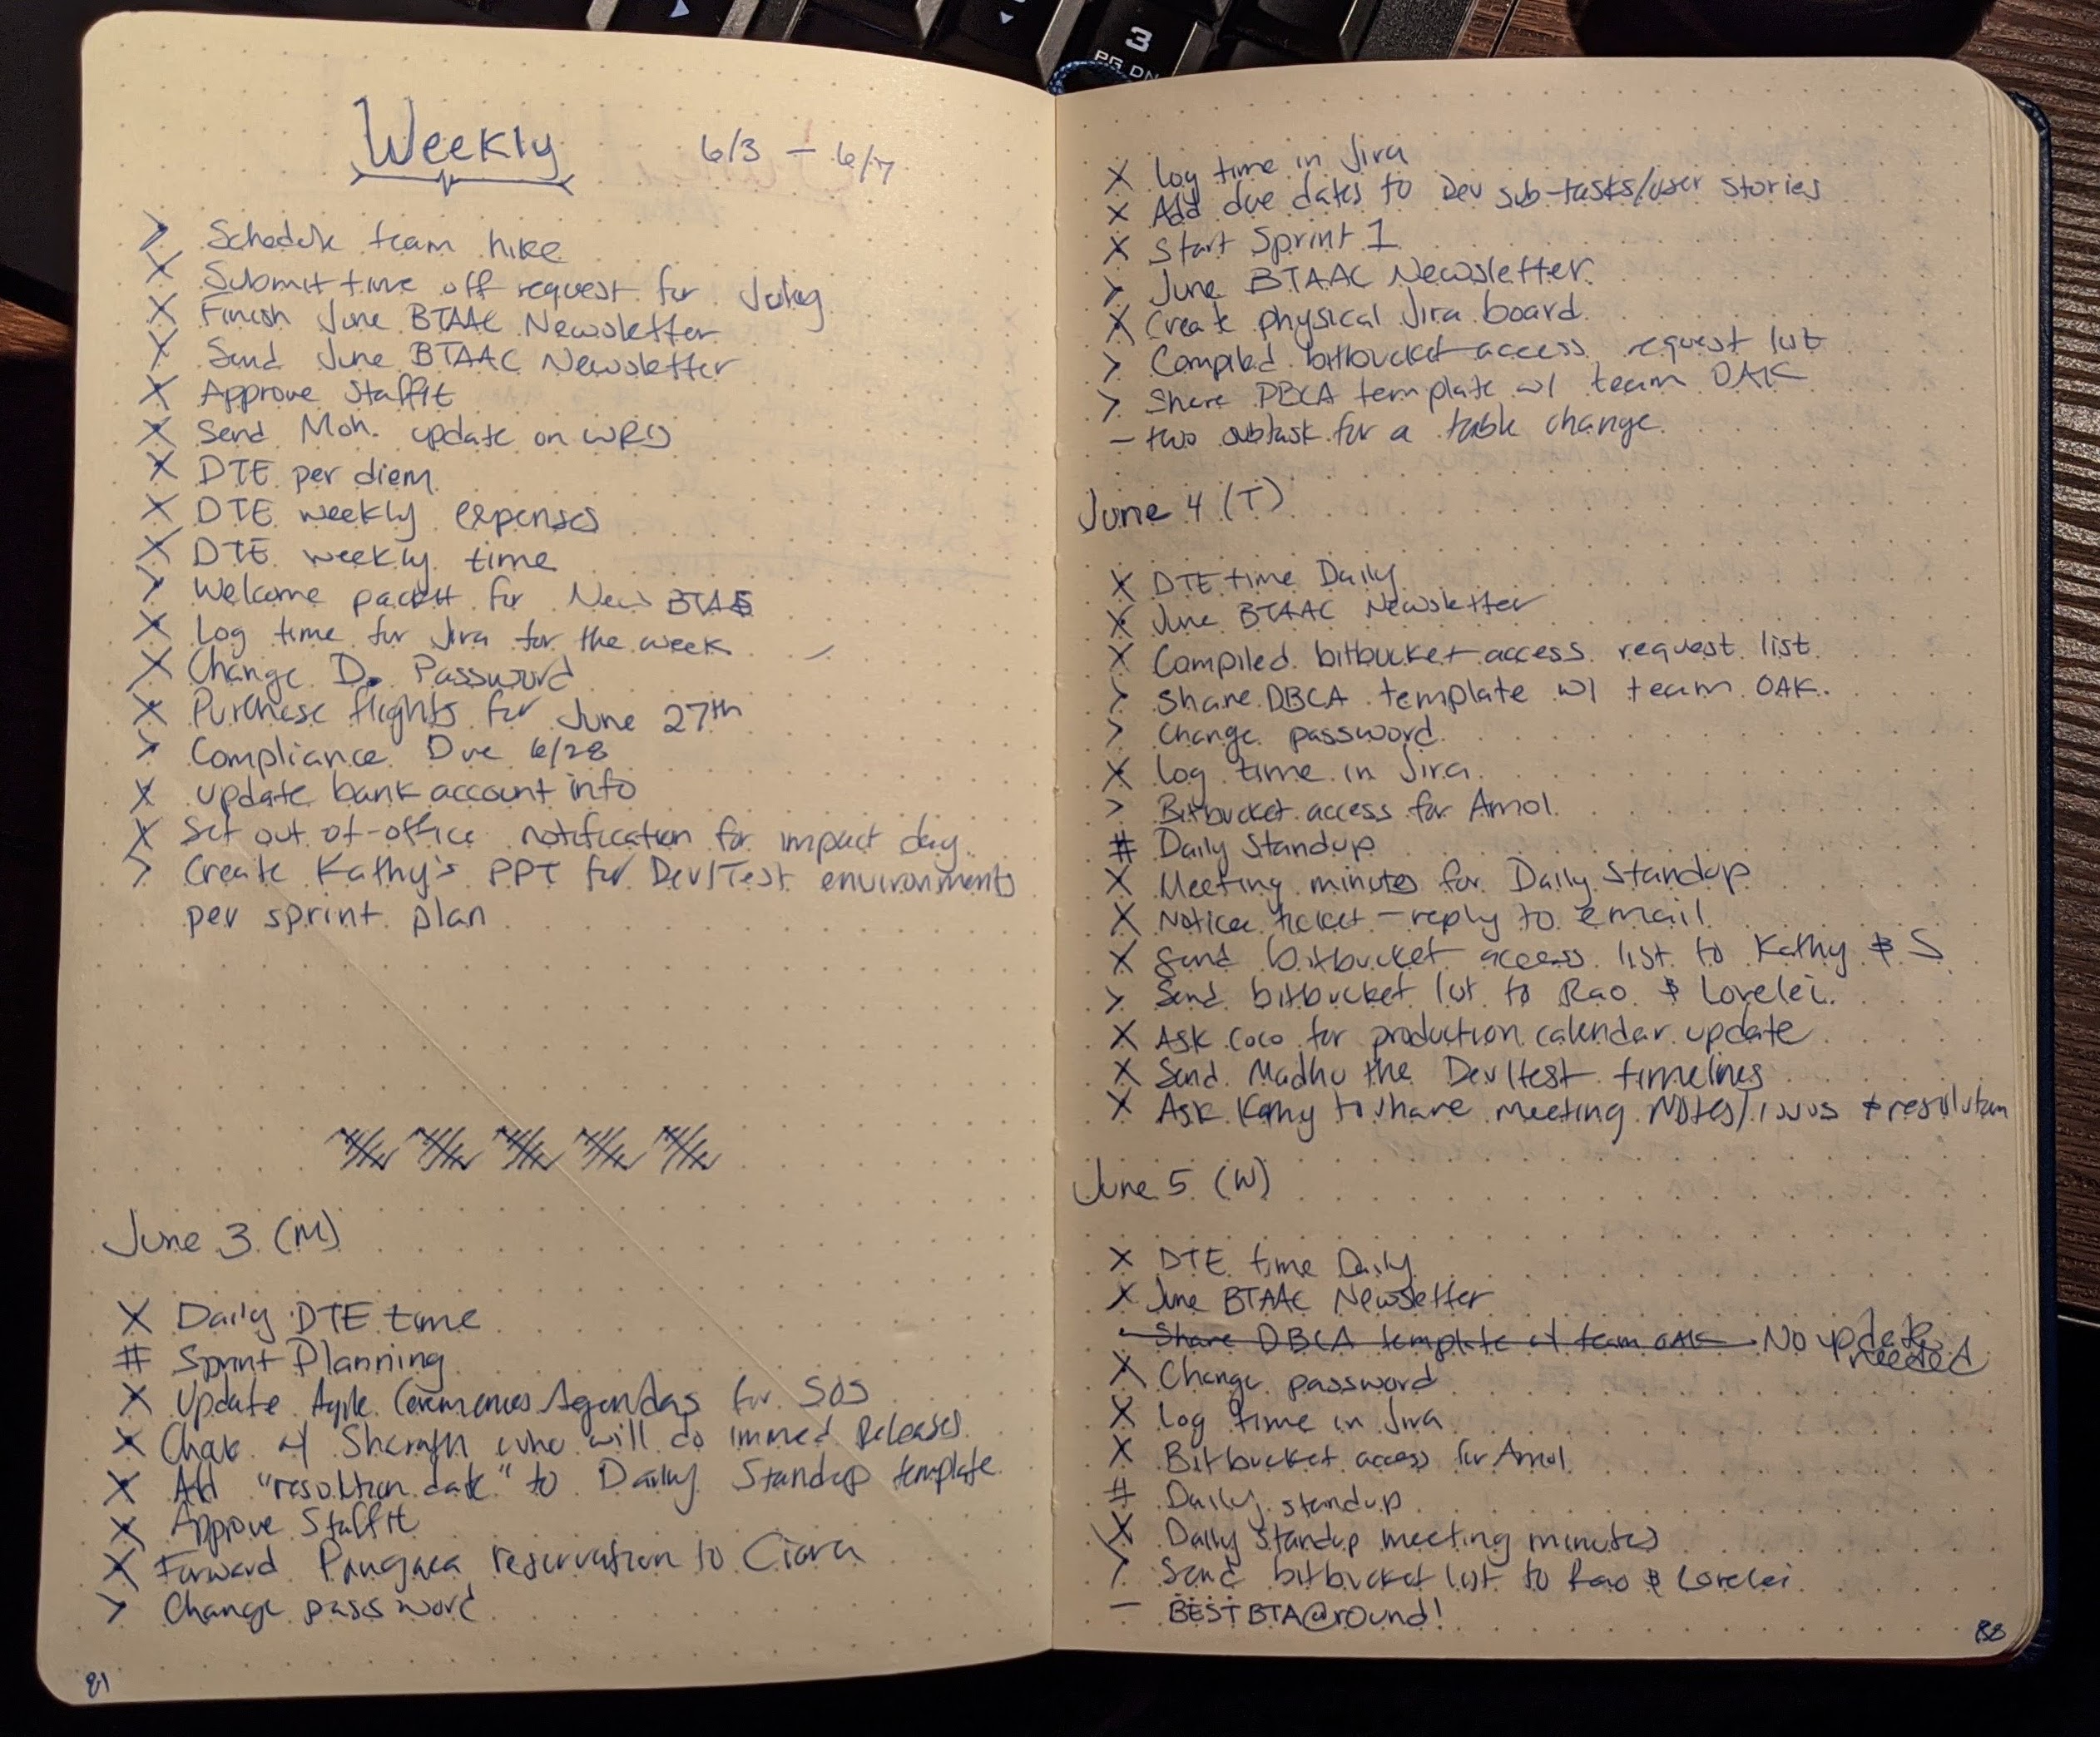 3
PG DN
Weekly 6/3 – 6/7
> Schedule team hike
X Submit time off request for July
X Finish June BTAAC Newsletter
X Send June BTAAC Newsletter
X Approve Staffit
X Send Moh. update on WRD
X DTE per diem
X DTE weekly expenses
X DTE weekly time
> Welcome packet for New BTAs
X Log time for Jira for the week
X Change D. Password
X Purchase flights for June 27th
> Compliance Due 6/28
X update bank account info
X Set out-of-office notification for impact day
> Create Kathy's PPT for Dev/Test environments
per sprint plan
June 3 (M)
X Daily DTE time
# Sprint Planning
X Update Agile Ceremonies Agendas for SOS
X w/ who will do immed Releases
X Add "resolution date" to Daily Standup template
X Approve Staffit
X Forward Pangaea reservation to Ciara
> Change password
81
X Log time in Jira
X Add due dates to Dev sub-tasks/user stories
X Start Sprint 1
> June BTAAC Newsletter
X Create physical Jira board
> Compiled bitbucket access request list
> Share DBCA template w/ team OAK
– two subtask for a table change
June 4 (T)
X DTE time Daily
X June BTAAC Newsletter
X Compiled bitbucket access request list
> Share DBCA template w/ team OAK.
> Change password
X Log time in Jira
> Bitbucket access for Amol
# Daily Standup
X Meeting minutes for Daily Standup
X ticket – reply to email
X Send bitbucket access list to Kathy & S
> Send bitbucket list to Rao & Lorelei.
X Ask Coco for production calendar update
X Send Madhu the Dev/test timelines
X Ask Kathy to share meeting notes/issues & resolution
June 5 (W)
X DTE time Daily
X June BTAAC Newsletter
• Share DBCA template w/ team OAK No update
needed
X Change password
X Log time in Jira
X Bitbucket access for Amol
# Daily standup
X Daily standup meeting minutes
> Send bitbucket list to Rao & Lorelei
– BEST BTA@rOund!